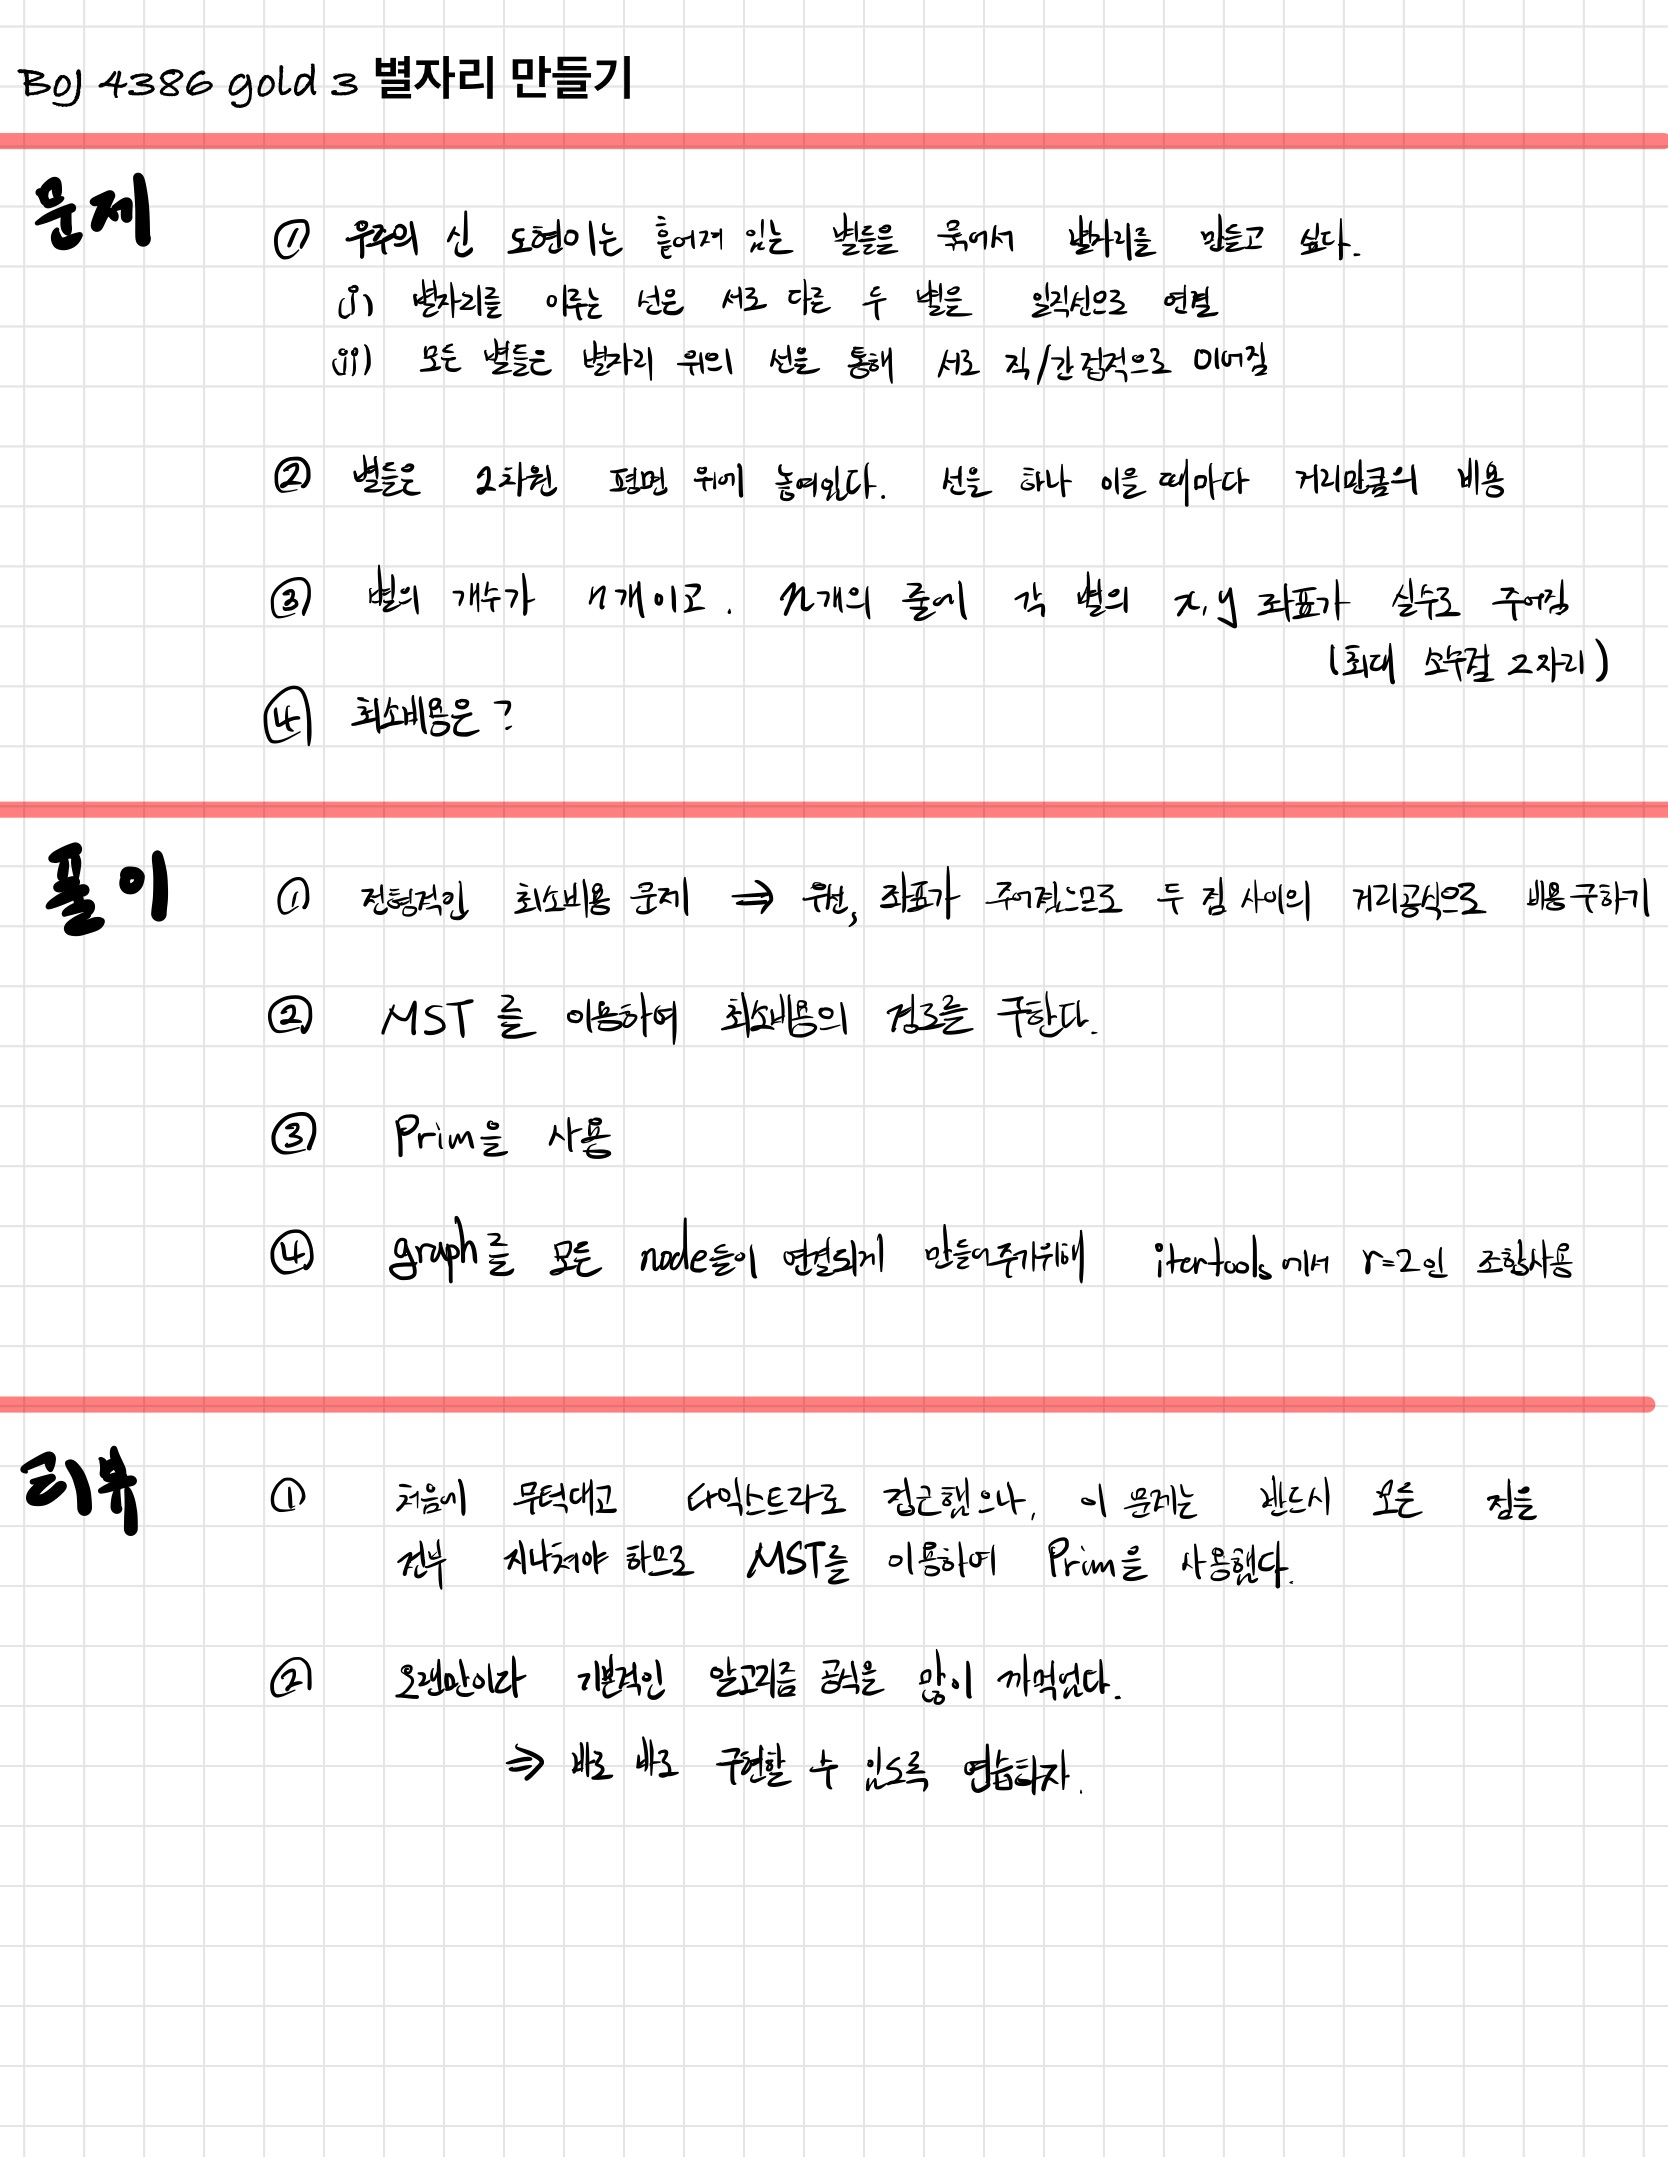 BOJ 4386 gold 3 별자리 만들기
문제
① 우주의 신 도현이는 흩어져 있는 별들을 묶어서 별자리를 만들고 싶다.
(i) 별자리를 이루는 선은 서로 다른 두 별을 일직선으로 연결
(ii) 모든 별들은 별자리 위의 선을 통해 서로 직/간접적으로 이어짐
② 별들은 2차원 평면 위에 놓여있다. 선을 하나 이을 때마다 거리만큼의 비용
③ 별의 개수가 n개이고. n개의 줄에 각 별의 x, y 좌표가 실수로 주어짐
(최대 소수점 2자리)
④ 최소비용은?
풀이
① 전형적인 최소비용 문제 ⇒ 우선, 좌표가 주어졌으므로 두 점 사이의 거리공식으로 비용구하기
② MST를 이용하여 최소비용의 경로를 구한다.
③ Prim을 사용
④ graph를 모든 node들이 연결되게 만들어주기위해 itertools에서 r=2인 조합사용
리뷰
① 처음에 무턱대고 다익스트라로 접근했으나, 이 문제는 반드시 모든 점을
전부 지나쳐야 하므로 MST를 이용하여 Prim을 사용했다.
② 오랜만이라 기본적인 알고리즘 공식을 많이 까먹었다.
⇒ 바로 바로 구현할 수 있도록 연습하자.